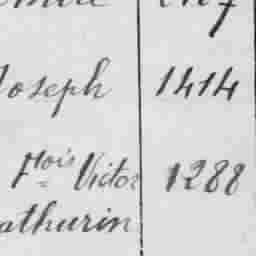 Joseph 1414
Flois Victor 1288
athurin